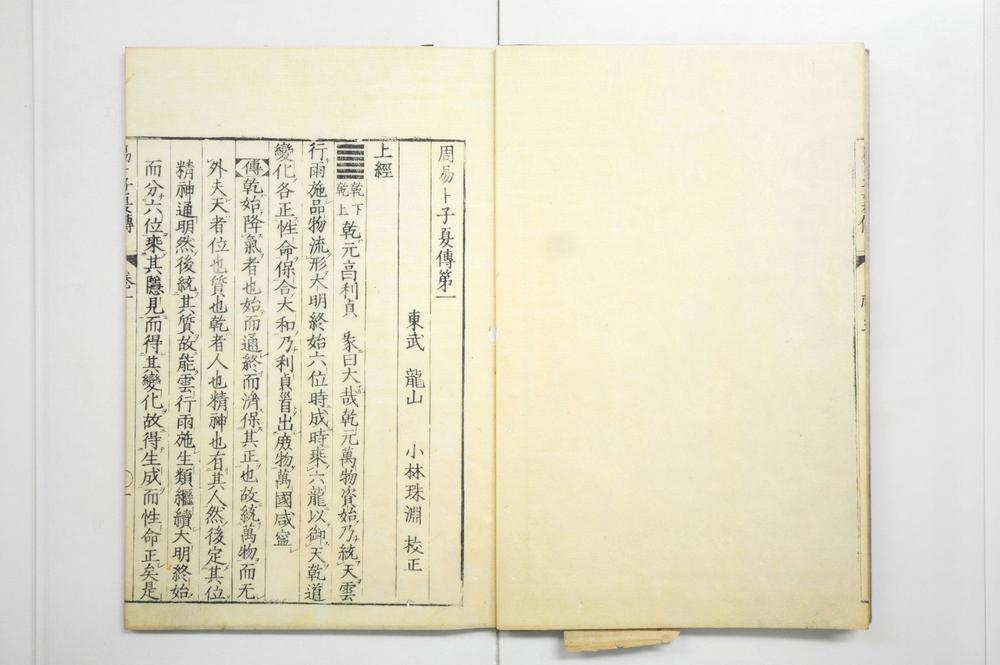 周易卜子夏傳第一
東武 龍山 小林珠淵 校正
上經
乾下乾上 乾元亯利貞 彖曰大哉乾元萬物資始乃統天雲
行雨施品物流形大明終始六位時成時乘六龍以御天乾道
變化各正性命保合大和乃利貞首出庻物萬國咸寍
傳乾始降氣者也始而通終而濟保其正也故統萬物而无
外夫天者位也質也乾者人也精神也有其人然後定其位
精神通明然後統其質故能雲行雨施生類繼續大明終始
而分六位乘其隱見而得其變化故得生成而性命正矣是
易卜子夏傳 卷一